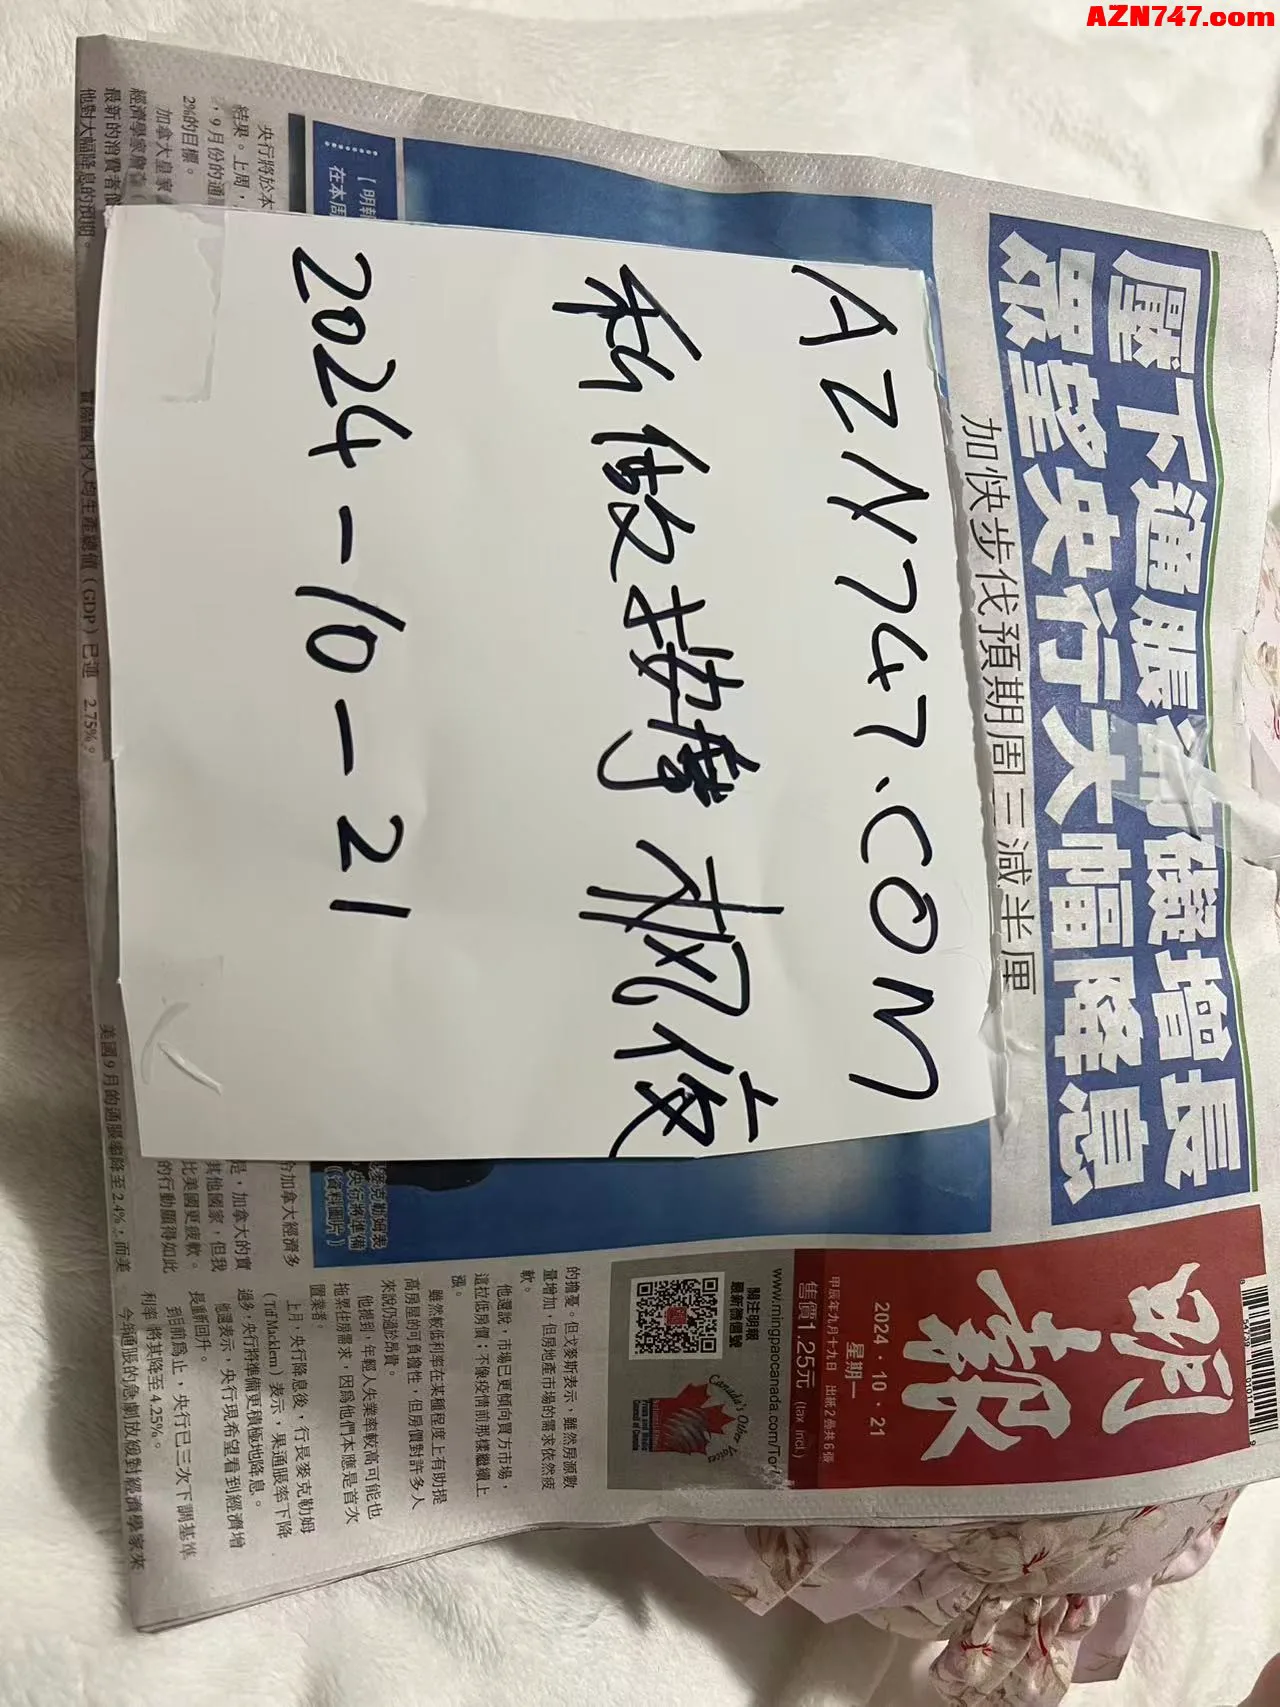 AZN747.com
AZN747.COM
私做按摩 枫俊
2024-10-21
壓下通脹
增長
眾望央行大幅降息
加快步伐預期周三減半厘
明報
2024·10·21
星期一
甲辰年九月十九日 出紙2疊共6張
售價1.25元 (tax incl.)
www.mingpaocanada.com/Tor
關注明報
最新微信號
Canada's Other Voices
的擔憂。但戈麥斯表示,雖然房源數
量增加,但房地產市場的需求依然疲
軟。
他還說,市場已更傾向買方市場,
這拉低房價;不像疫情前那樣繼續上
漲。
雖然較低利率在某種程度上有助提
高房屋的可負擔性,但房價對許多人
來說仍過於昂貴。
他提到,年輕人失業率較高可能也
拖累住房需求,因為他們本應是首次
置業者。
上月,央行降息後,行長麥克勒姆
(Tiff Macklem)表示,果通脹率下降
過多,央行將準備更積極地降息。
他還表示,央行現希望看到經濟增
長重新回升。
到目前為止,央行已三次下調基準
利率 將其降至4.25%。
今年通脹的急劇放緩對經濟學家來
【明報
在本周
央行將於本
結果。上周,
,9月份的通
2%的目標。
加拿大皇家
經濟學家詹森
最新的消費者價
他對大幅降息的預期。
實際國內人均生產總值(GDP)已連
2.75%。
美國9月的通脹率降至2.4%,而美
麥克勒姆表
央行將準備
(資料圖片)
加拿大經濟多
是,加拿大的實
其他國家,但我
比美國更疲軟。
的行動顯得如此